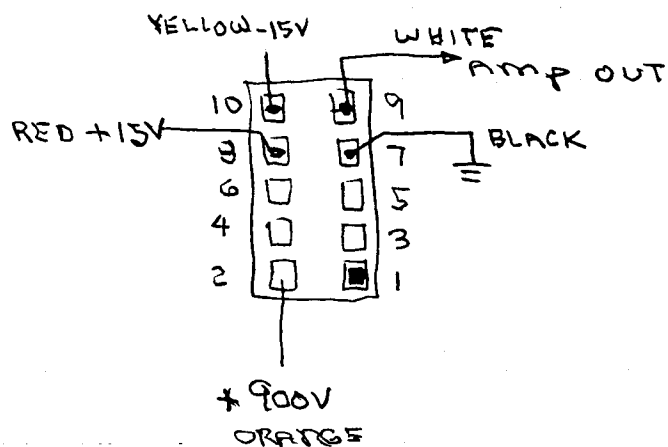 YELLOW-15V
WHITE
AMP OUT
10
9
RED +15V
8
7
BLACK
6
5
4
3
2
1
* 900V
ORANGE